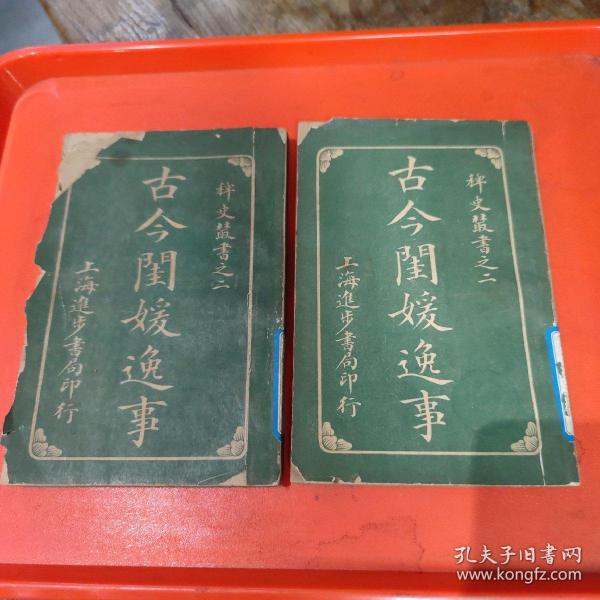 稗史叢書之二
古今閨媛逸事
上海進步書局印行
稗史叢書之二
古今閨媛逸事
上海進步書局印行
孔夫子旧书网
www.kongfz.com